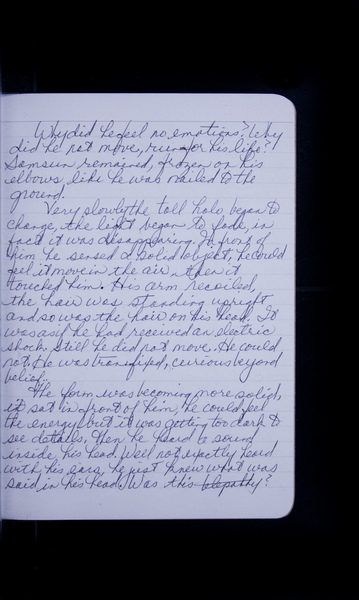 Why did he feel no emotions? Why
did he not move, run for his life?
Samsun remained, frozen on his
elbows, like he was nailed to the
ground.
Very slowly the tall halo began to
change, the light began to fade, in
fact it was disappearing. In front of
him he sensed a solid object, he could
feel it move in the air, then it
touched him. His arm recoiled,
the hair was standing upright
and so was the hair on his head. It
was as if he had received an electric
shock. Still he did not move. He could
not. He was transfixed, curious beyond
belief.
The form was becoming more solid,
it sat in front of him, he could feel
the energy but it was getting too dark to
see details. Then he heard a sound
inside his head. Well not exactly heard
with his ears, he just knew what was
said in his head. Was this telepathy?